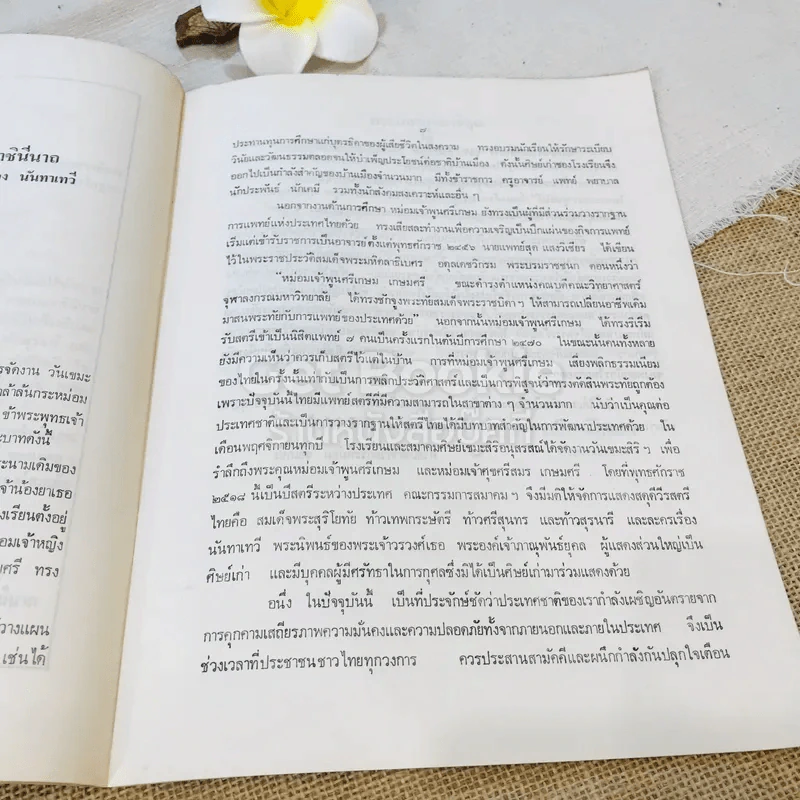 ชินีนาถ
ง นันทาเทวี
รจัดงาน วันเขมะ
กล้าล้นกระหม่อม
ข้าพระพุทธเจ้า
ะบาทดังนี้
ะนามเดิมของ
จ้าน้องยาเธอ
งเรียนตั้งอยู่
อมเจ้าหญิง
ยศรี ทรง
ว้วางแผน
เช่นได้
๘
ประทานทุนการศึกษาแก่บุตรธิดาของผู้เสียชีวิตในสงคราม ทรงอบรมนักเรียนให้รักษาระเบียบ
วินัยและวัฒนธรรมตลอดจนให้บำเพ็ญประโยชน์ต่อชาติบ้านเมือง ดังนั้นศิษย์เก่าของโรงเรียนจึง
ออกไปเป็นกำลังสำคัญของบ้านเมืองจำนวนมาก มีทั้งข้าราชการ ครูอาจารย์ แพทย์ พยาบาล
นักประพันธ์ นักเคมี รวมทั้งนักสังคมสงเคราะห์และอื่น ๆ
นอกจากงานด้านการศึกษา หม่อมเจ้าพูนศรีเกษม ยังทรงเป็นผู้ที่มีส่วนร่วมวางรากฐาน
การแพทย์แห่งประเทศไทยด้วย ทรงเสียสละทำงานเพื่อความเจริญเป็นปึกแผ่นของกิจการแพทย์
เริ่มแต่เข้ารับราชการเป็นอาจารย์ ตั้งแต่พุทธศักราช ๒๔๕๖ นายแพทย์สุด แสงวิเชียร ได้เขียน
ไว้ในพระราชประวัติสมเด็จพระมหิตลาธิเบศร อดุลเดชวิกรม พระบรมราชชนก ตอนหนึ่งว่า
"หม่อมเจ้าพูนศรีเกษม เกษมศรี ขณะดำรงตำแหน่งคณบดีคณะวิทยาศาสตร์
จุฬาลงกรณมหาวิทยาลัย ได้ทรงชักจูงพระทัยสมเด็จพระราชบิดา ฯ ให้สามารถเปลี่ยนอาชีพเดิม
มาสนพระทัยกับการแพทย์ของประเทศด้วย" นอกจากนั้นหม่อมเจ้าพูนศรีเกษม ได้ทรงริเริ่ม
รับสตรีเข้าเป็นนิสิตแพทย์ ๗ คนเป็นครั้งแรกในต้นปีการศึกษา ๒๔๗๐ ในขณะนั้นคนทั้งหลาย
ยังมีความเห็นว่าควรเก็บสตรีไว้แต่ในบ้าน การที่หม่อมเจ้าพูนศรีเกษม เสี่ยงพลิกธรรมเนียม
ของไทยในครั้งนั้นเท่ากับเป็นการพลิกประวัติศาสตร์และเป็นการพิสูจน์ว่าทรงตัดสินพระทัยถูกต้อง
เพราะปัจจุบันนี้ไทยมีแพทย์สตรีที่มีความสามารถในสาขาต่าง ๆ จำนวนมาก นับว่าเป็นคุณต่อ
ประเทศชาติและเป็นการวางรากฐานให้สตรีไทยได้มีบทบาทสำคัญในการพัฒนาประเทศด้วย ใน
เดือนพฤศจิกายนทุกปี โรงเรียนและสมาคมศิษย์เขมะสิริอนุสสรณ์ได้จัดงานวันเขมะสิริ ฯ เพื่อ
รำลึกถึงพระคุณหม่อมเจ้าพูนศรีเกษม และหม่อมเจ้าศุขศรีสมร เกษมศรี โดยที่พุทธศักราช
๒๕๑๘ นี้เป็นปีสตรีระหว่างประเทศ คณะกรรมการสมาคม ฯ จึงมีมติให้จัดการแสดงสดุดีวีรสตรี
ไทยคือ สมเด็จพระสุริโยทัย ท้าวเทพกระษัตรี ท้าวศรีสุนทร และท้าวสุรนารี และละครเรื่อง
นันทาเทวี พระนิพนธ์ของพระเจ้าวรวงศ์เธอ พระองค์เจ้าภาณุพันธ์ยุคล ผู้แสดงส่วนใหญ่เป็น
ศิษย์เก่า และมีบุคคลผู้มีศรัทธาในการกุศลซึ่งมิได้เป็นศิษย์เก่ามาร่วมแสดงด้วย
อนึ่ง ในปัจจุบันนี้ เป็นที่ประจักษ์ชัดว่าประเทศชาติของเรากำลังเผชิญอันตรายจาก
การคุกคามเสถียรภาพความมั่นคงและความปลอดภัยทั้งจากภายนอกและภายในประเทศ จึงเป็น
ช่วงเวลาที่ประชาชนชาวไทยทุกวงการ ควรประสานสามัคคีและผนึกกำลังกันปลุกใจเตือน